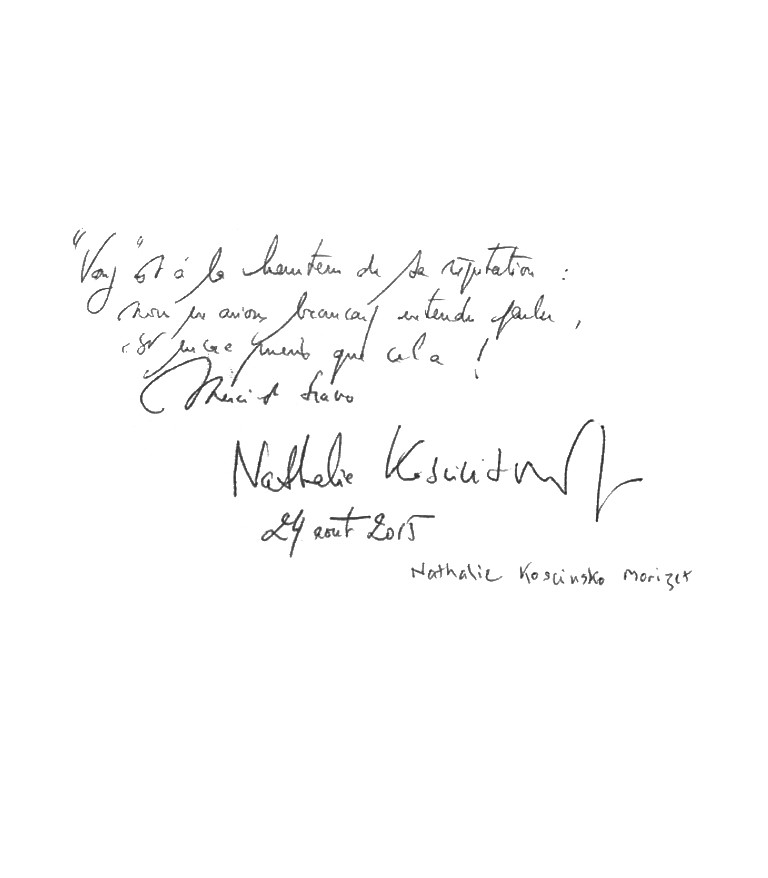 "Vou" est à la hauteur de sa réputation :
nous en avions beaucoup entendu parler,
et encore mieux que cela !
Merci et bravo
Nathalie Kosciusko
24 aout 2015
Nathalie Koscinsko Morizet